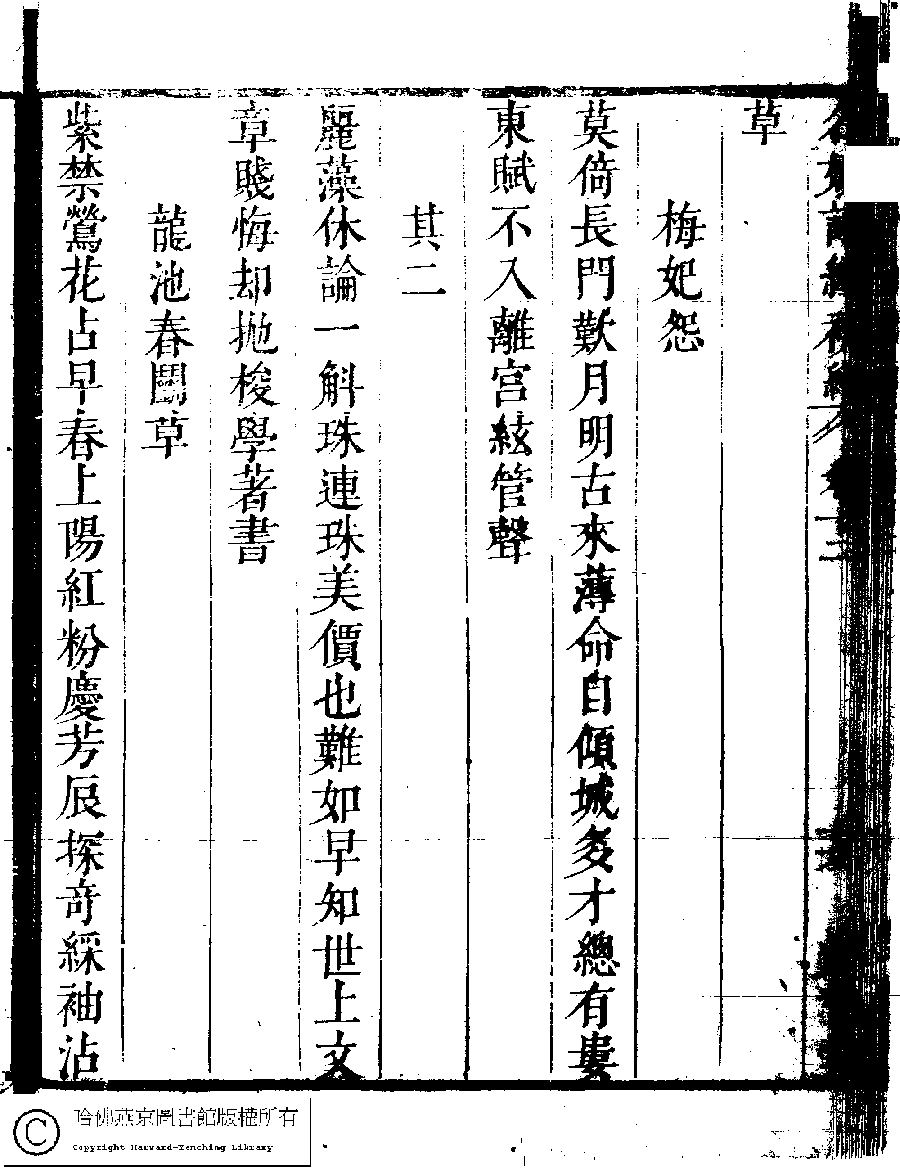 名媛詩緯初編
草
梅妃怨
莫倚長門歎月明古來薄命自傾城多才總有婁
東賦不入離宮絃管聲
其二
麗藻休論一斛珠連珠美價也難如早知世上文
章賤悔却拋梭學著書
龍池春鬭草
紫禁鶯花占早春上陽紅粉慶芳辰探奇綵袖沾
© 哈佛燕京圖書館版權所有
Copyright Harvard-Yenching Library